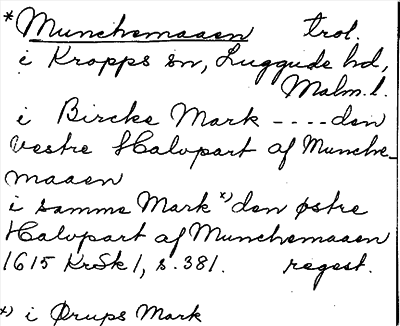 *Munchemaaen trol.
i Kropps sn, Luggude hd,
Malm.l.
i Bircke Mark ----den
Vestre Halvpart af Munche-
maaen
i samme Mark x) den østre
Halvpart af Munchemaaen
1615 KrSk 1, s. 381. regest.
x) i Ørups Mark